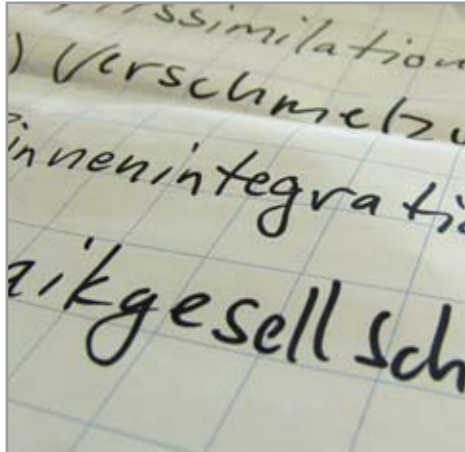 ssimilation
) Verschmelzu
innenintegratio
aikgesellsch